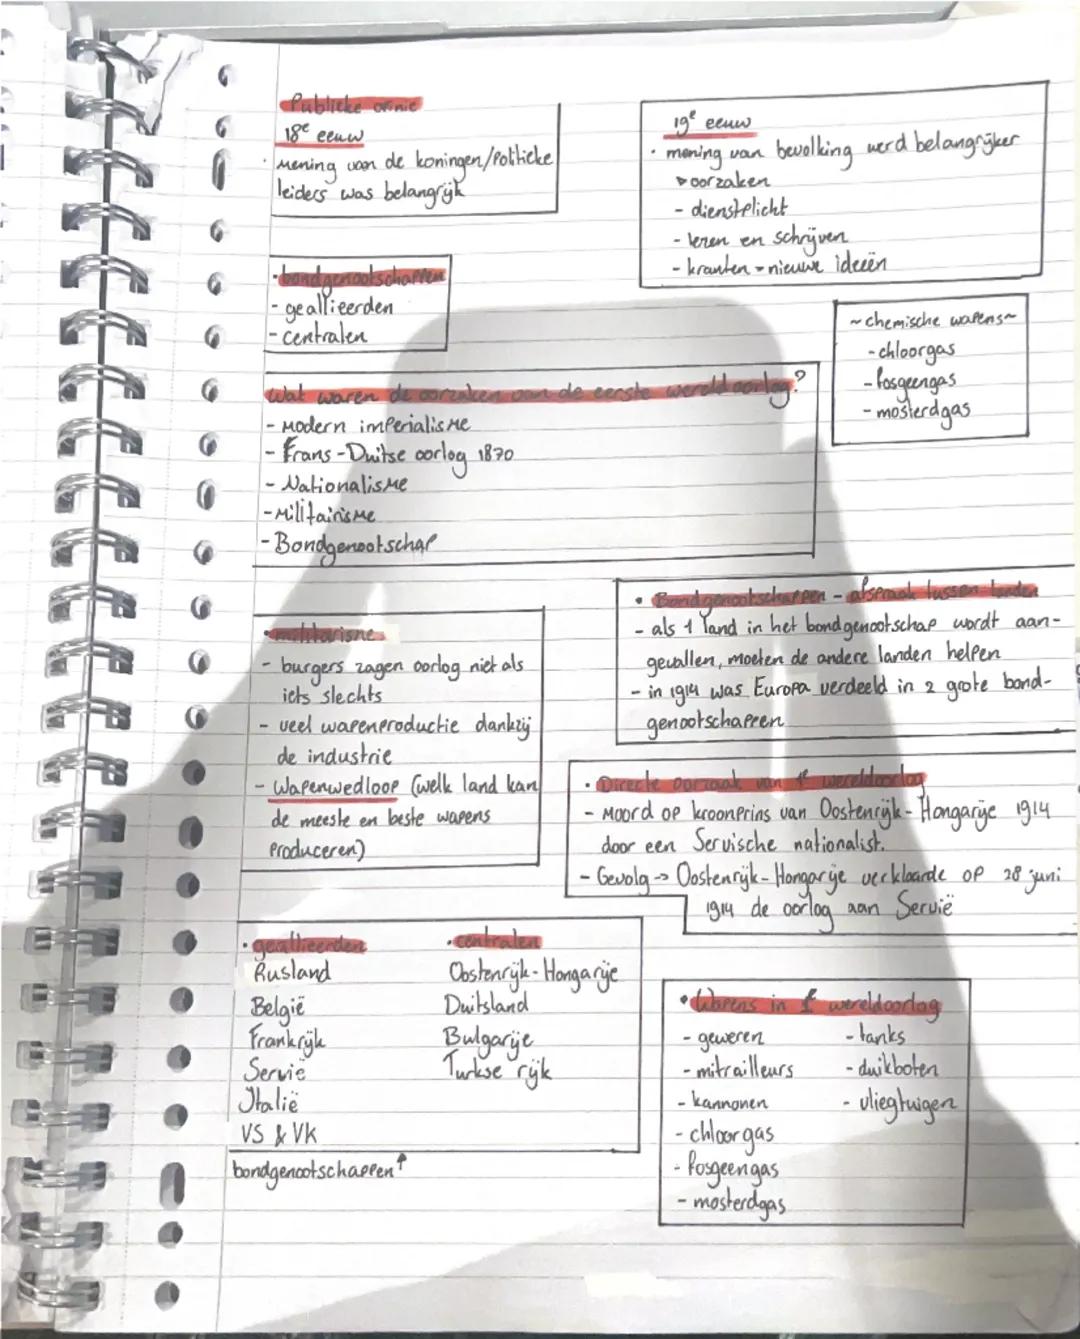 Publieke opinie
18e eeuw
· mening van de koningen/Politieke
leiders was belangrijk
19e eeuw
· mening van bevolking werd belangrijker
▸oorzaken
- dienstplicht
- lezen en schrijven
- kranten = nieuwe ideeën
· bondgenootschappen
- geallieerden
- centralen
~chemische wapens~
- chloorgas
- fosgeengas
- mosterdgas
Wat waren de oorzaken van de eerste wereldoorlog?
- Modern imperialisme
- Frans-Duitse oorlog 1870
- Nationalisme
- Militairisme
- Bondgenootschap
• Bondgenootschappen - afspraak tussen landen
- als 1 land in het bondgenootschap wordt aan-
gevallen, moeten de andere landen helpen
- in 1914 was Europa verdeeld in 2 grote bond-
genootschappen
• militarisme
- burgers zagen oorlog niet als
iets slechts
- veel wapenproductie dankzij
de industrie
- Wapenwedloop (welk land kan
de meeste en beste wapens
produceren)
• Directe oorzaak van 1e wereldoorlog
- Moord op kroonprins van Oostenrijk-Hongarije 1914
door een Servische nationalist.
- Gevolg → Oostenrijk-Hongarije verklaarde op 28 juni
1914 de oorlog aan Servië
• geallieerden
Rusland
België
Frankrijk
Servië
Italië
VS & VK
• centralen
Oostenrijk-Hongarije
Duitsland
Bulgarije
Turkse rijk
bondgenootschappen ↑
• Wapens in 1e wereldoorlog
- geweren
- mitrailleurs
- kannonen
- chloorgas
- fosgeengas
- mosterdgas
- tanks
- duikboten
- vliegtuigen